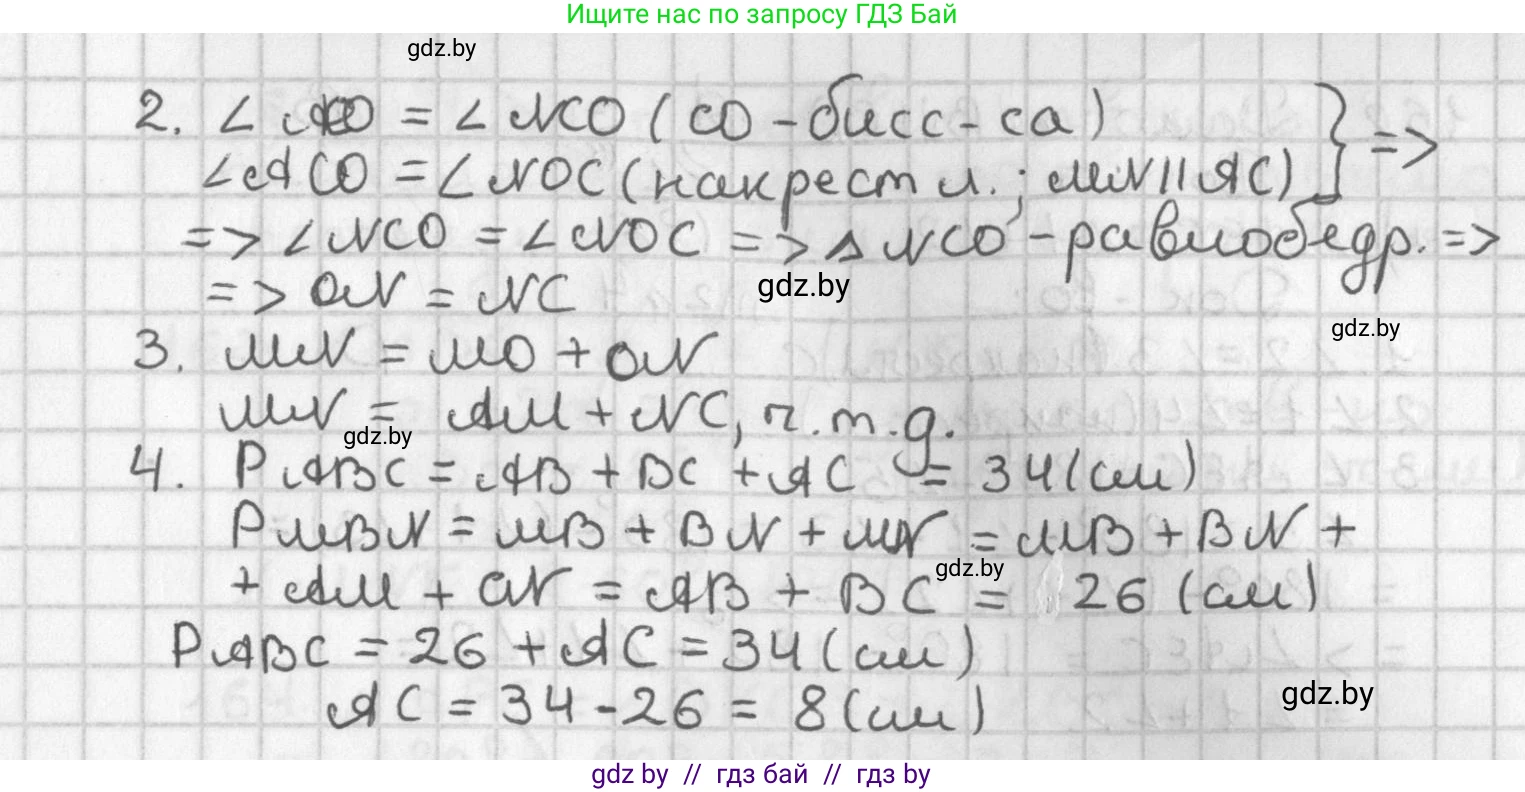 Ищите нас по запросу ГДЗ Бай
gdz.by
2. ∠ACO = ∠NCO (CO - бисс-са)
∠ACO = ∠NOC (накрест л.; MN || AC) } =>
=> ∠NCO = ∠NOC => △NCO - равнобедр. =>
=> ON = NC
gdz.by
gdz.by
3. MN = MO + ON
MN = AM + NC, ч.т.д.
gdz.by
4. P ABC = AB + BC + AC = 34 (см)
P MBN = MB + BN + MN = MB + BN +
gdz.by
+ AM + ON = AB + BC = 26 (см)
P ABC = 26 + AC = 34 (см)
AC = 34 - 26 = 8 (см)
gdz.by
gdz by // гдз бай // гдз by